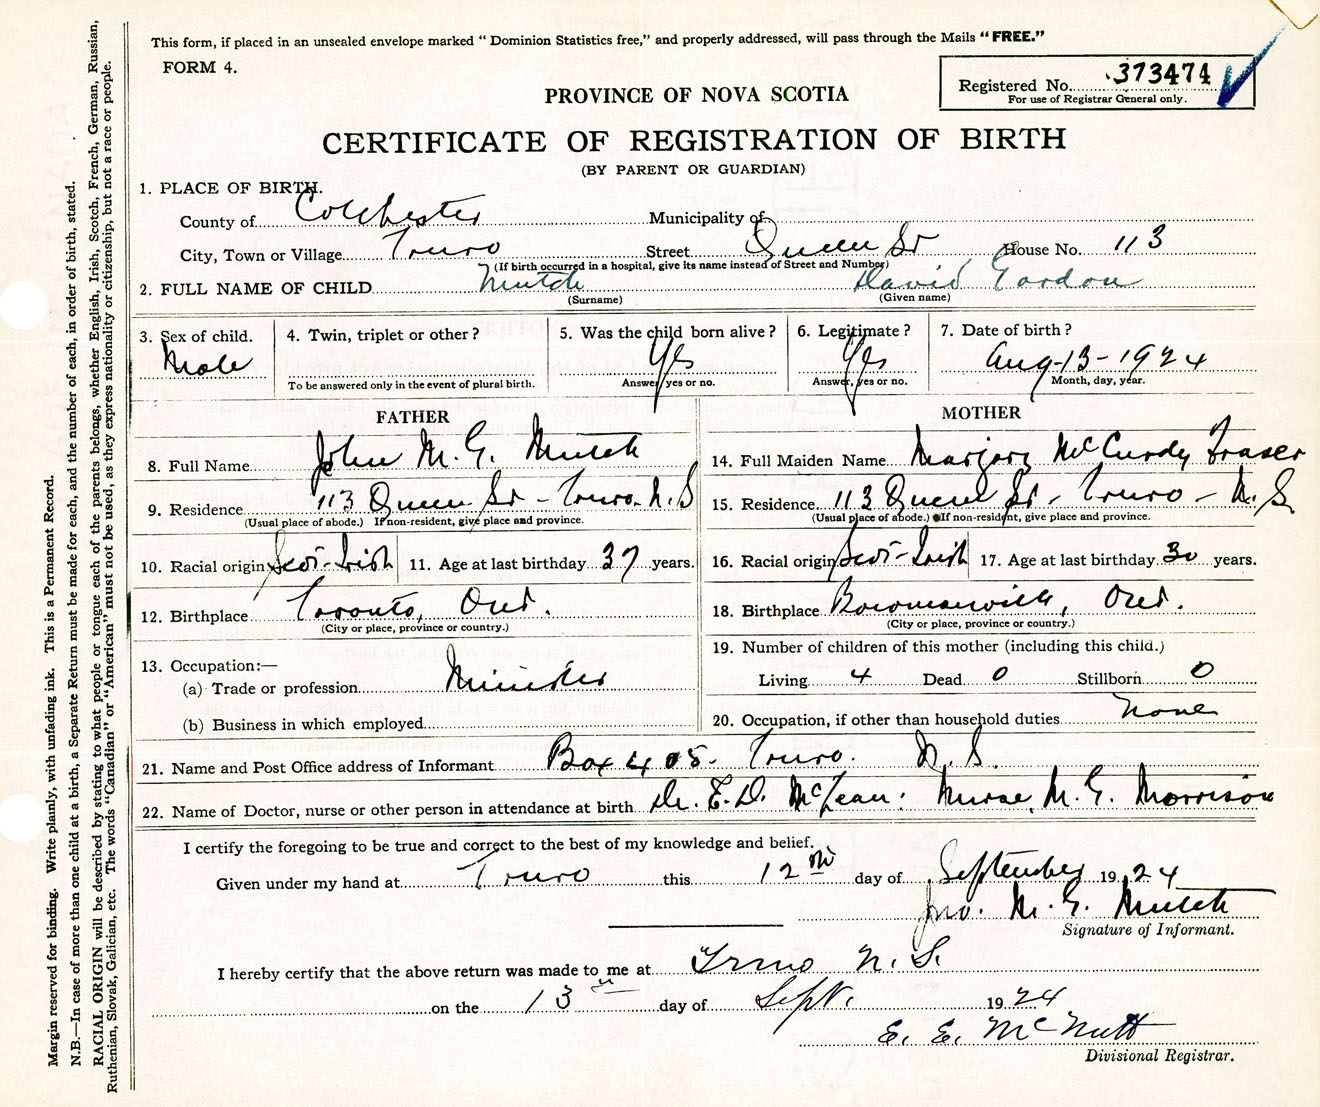 This form, if placed in an unsealed envelope marked “Dominion Statistics free,” and properly addressed, will pass through the Mails “FREE.”
FORM 4.
Registered No. 373474
For use of Registrar General only.
PROVINCE OF NOVA SCOTIA
CERTIFICATE OF REGISTRATION OF BIRTH
(BY PARENT OR GUARDIAN)
1. PLACE OF BIRTH.
County of Colchester Municipality of
City, Town or Village Truro Street Queen St House No. 113
(If birth occurred in a hospital, give its name instead of Street and Number)
2. FULL NAME OF CHILD Mutch David Gordon
(Surname) (Given name)
3. Sex of child. 4. Twin, triplet or other? 5. Was the child born alive? 6. Legitimate? 7. Date of birth?
Male Yes Yes Aug-13-1924
To be answered only in the event of plural birth. Answer, yes or no. Answer, yes or no. Month, day, year.
FATHER
8. Full Name John M. G. Mutch
9. Residence 113 Queen St - Truro. N.S
(Usual place of abode.) If non-resident, give place and province.
10. Racial origin Scot-Irish 11. Age at last birthday 37 years.
12. Birthplace Toronto, Ont.
(City or place, province or country.)
13. Occupation:—
(a) Trade or profession Minister
(b) Business in which employed
MOTHER
14. Full Maiden Name Marjory McCurdy Fraser
15. Residence 113 Queen St. - Truro - N.S
(Usual place of abode.) If non-resident, give place and province.
16. Racial origin Scot-Irish 17. Age at last birthday 30 years.
18. Birthplace Bowmanville, Ont.
(City or place, province or country.)
19. Number of children of this mother (including this child.)
Living 4 Dead 0 Stillborn 0
20. Occupation, if other than household duties None
21. Name and Post Office address of Informant Box 405. Truro. N.S.
22. Name of Doctor, nurse or other person in attendance at birth Dr. E.D. McLean. Nurse M.G. Morrison
I certify the foregoing to be true and correct to the best of my knowledge and belief.
Given under my hand at Truro this 12th day of September 1924
Jno. M. G. Mutch
Signature of Informant.
I hereby certify that the above return was made to me at Truro N.S.
on the 13 day of Sept. 1924
E. E. McNutt
Divisional Registrar.
Margin reserved for binding. Write planly, with unfading ink. This is a Permanent Record.
N.B.—In case of more than one child at a birth, a Separate Return must be made for each, and the number of each, in order of birth, stated.
RACIAL ORIGIN will be described by stating to what people or tongue each of the parents belongs, whether English, Irish, Scotch, French, German, Russian,
Ruthenian, Slovak, Galician, etc. The words “Canadian” or “American” must not be used, as they express nationality or citizenship, but not a race or people.